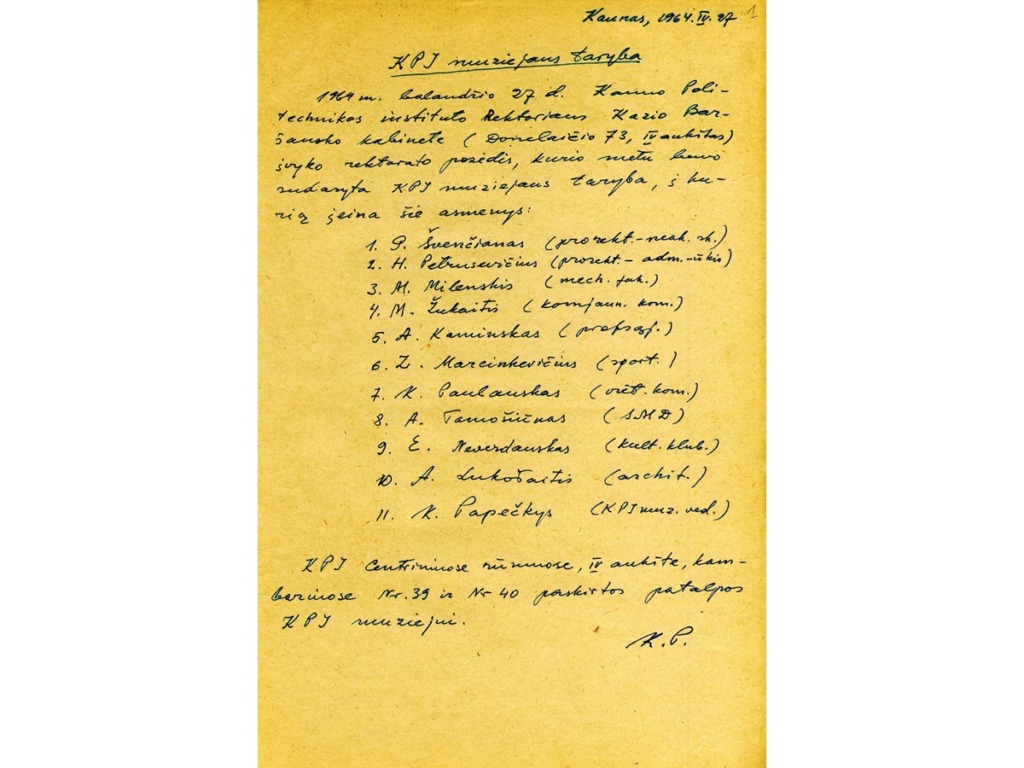 Kaunas, 1964.IV.27 1
KPI muziejaus taryba
1964 m. balandžio 27 d. Kauno Poli-
technikos instituto Rektoriaus Kazio Bar-
šausko kabinete (Donelaičio 73, IV aukštas)
įvyko rektorato posėdis, kurio metu buvo
sudaryta KPI muziejaus taryba, į ku-
rią įeina šie asmenys:
1. P. Švenčianas (prorekt.-neak. sk.)
2. H. Petrusevičius (prorekt.- adm.-ūkis)
3. M. Milenskis (mech. fak.)
4. M. Žukaitis (komjaun. kom.)
5. A. Kaminskas (profsąj.)
6. Z. Marcinkevičius (sport.)
7. K. Paulauskas (viet. kom.)
8. A. Tamošiūnas (SMD)
9. E. Neverdauskas (kult. klub.)
10. A. Lukošaitis (archit.)
11. K. Papečkys (KPI muz. ved.)
KPI Centriniuose rūmuose, IV aukšte, kam-
bariuose Nr. 39 ir Nr 40 paskirtos patalpos
KPI muziejui.
K.P.